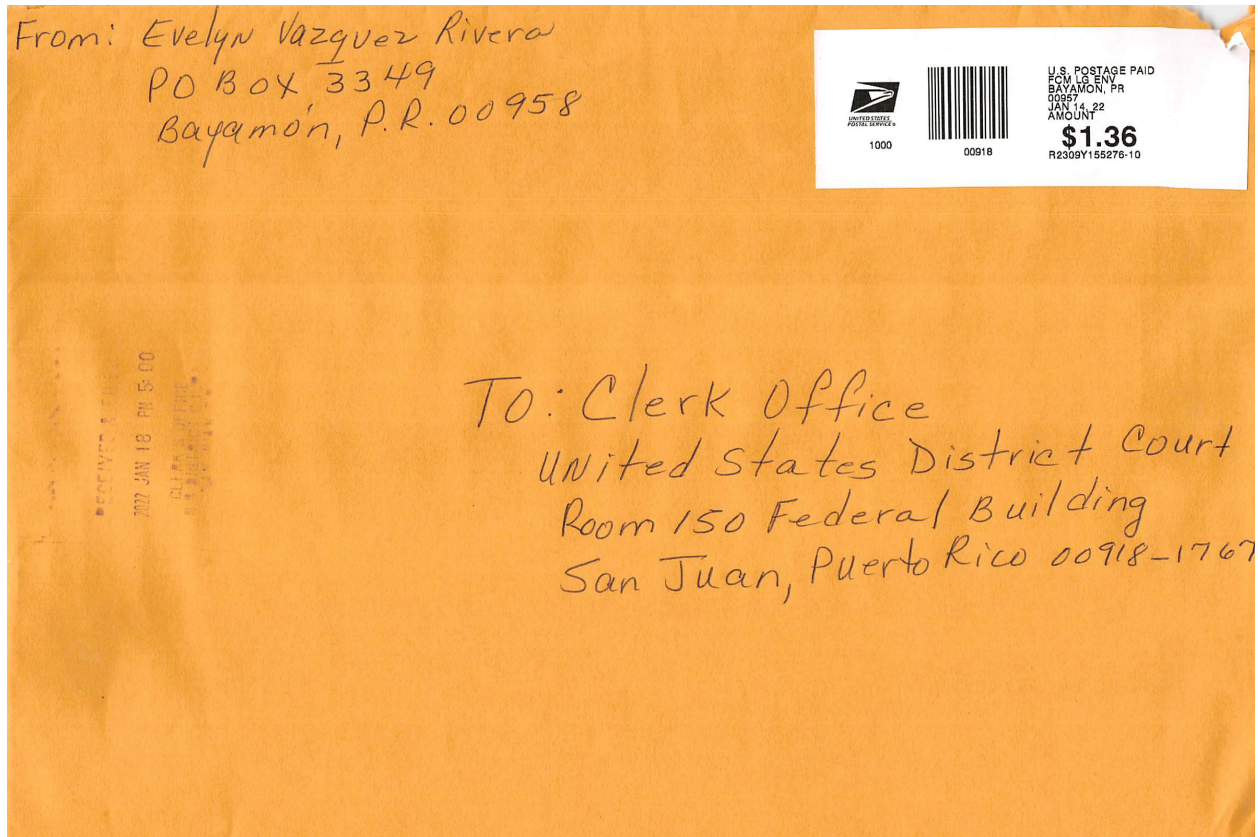 From: Evelyn Vazquez Rivera
PO Box 3349
Bayamón, P.R. 00958
UNITED STATES
POSTAL SERVICE®
1000
00918
U.S. POSTAGE PAID
FCM LG ENV
BAYAMON, PR
00957
JAN 14, 22
AMOUNT
$1.36
R2309Y155276-10
RECEIVED & FILED
2022 JAN 18 PM 5:00
CLERK'S OFFICE
To: Clerk Office
United States District Court
Room 150 Federal Building
San Juan, Puerto Rico 00918-1767